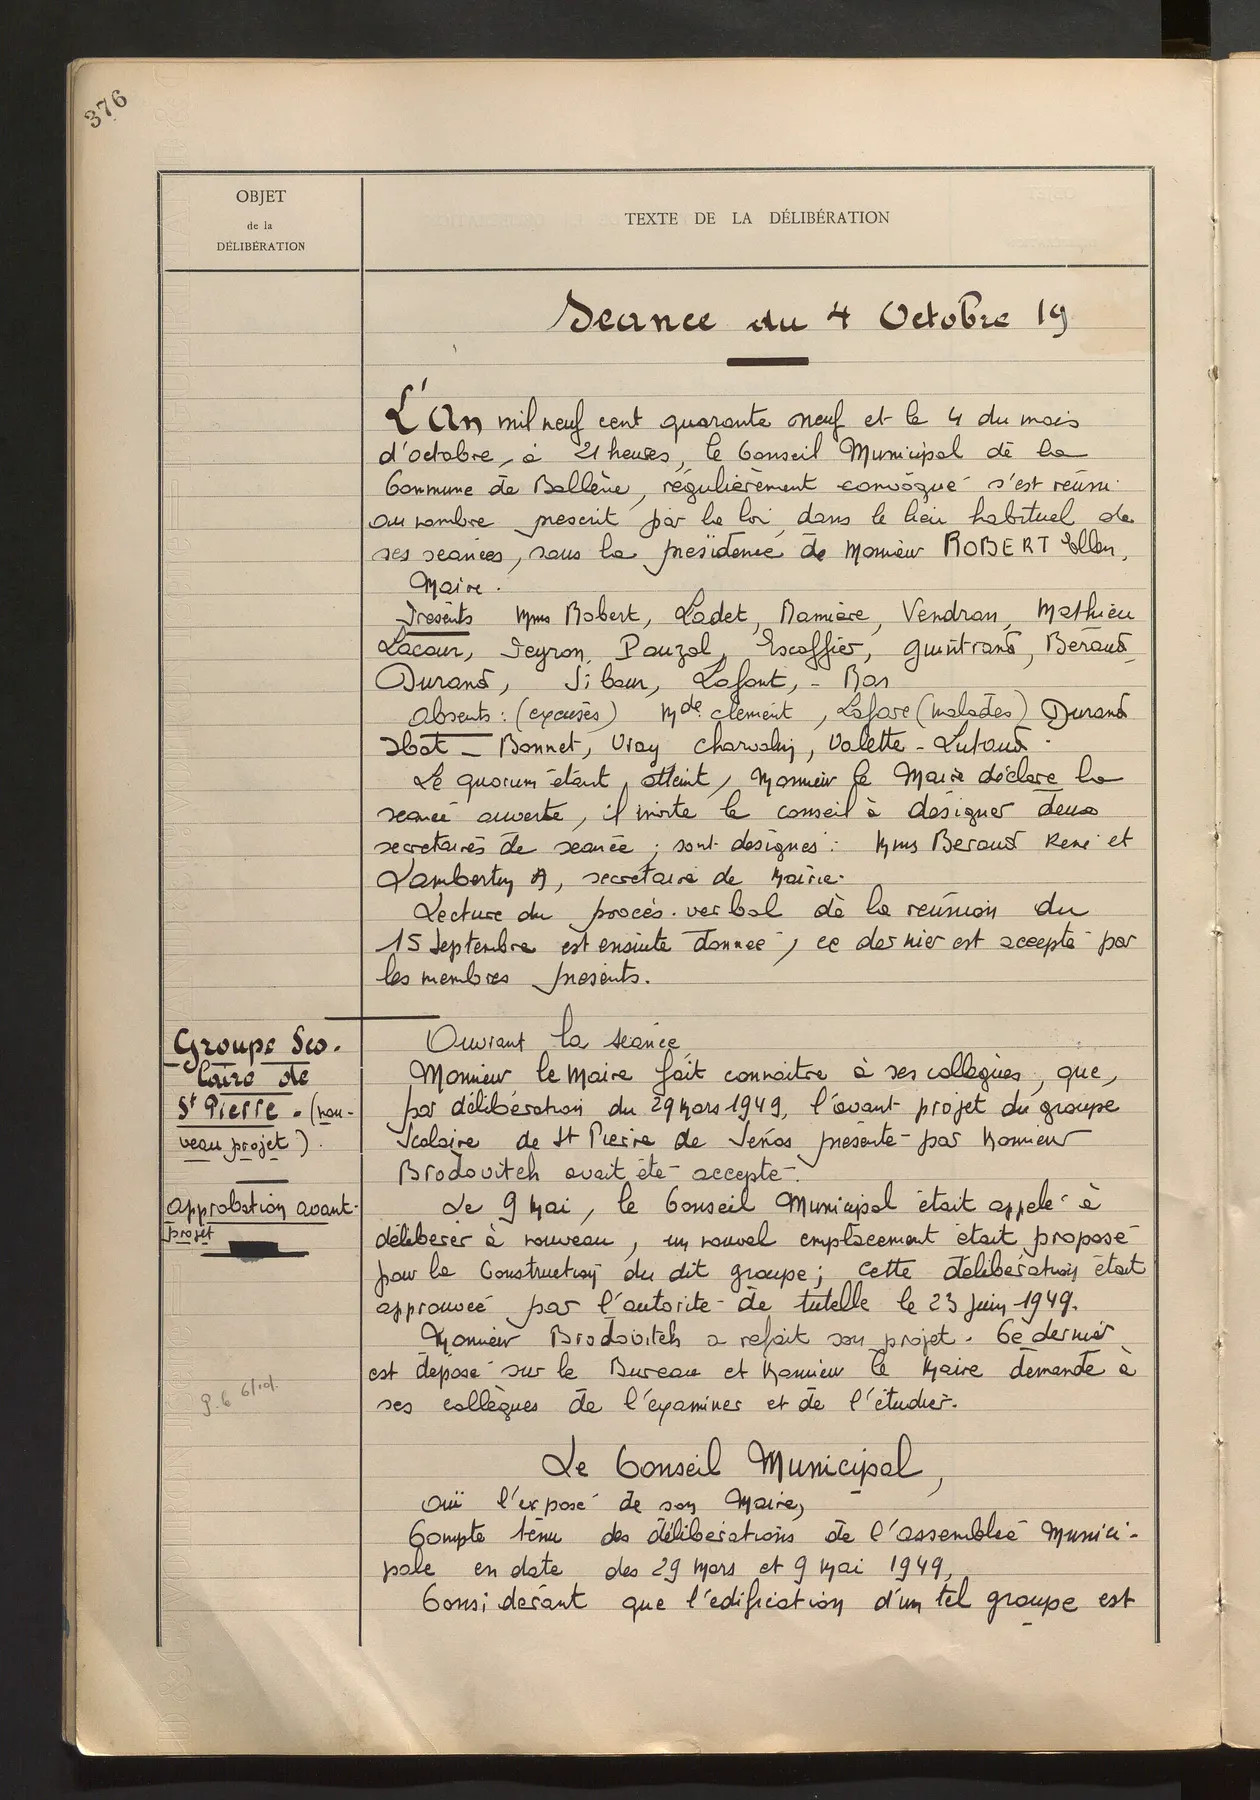 376
OBJET
de la
DÉLIBÉRATION
TEXTE DE LA DÉLIBÉRATION
Seance du 4 Octobre 19
L'An mil neuf cent quarante neuf et le 4 du mois
d'octobre, à 21 heures, le Conseil Municipal de la
Commune de Bollène, régulièrement convoqué s'est réuni
au nombre prescrit par la loi, dans le lieu habituel de
ses séances, sous la présidence de Monsieur ROBERT Ellen,
Maire.
Présents Mms Robert, Ladet, Ramière, Vendran, Mathieu
Lacour, Peyron, Pouzol, Escoffier, Guintrand, Béraud,
Durand, Sibour, Lafont, - Bas
Absents : (excusés) Mde Clement, Lafare (malades) Durand
- Bonnet, Vray Charvalin, Valette - Lutaud.
Le quorum étant atteint, Monsieur le Maire déclare la
séance ouverte, il invite le conseil à désigner deux
secretaires de séance ; sont désignés : Mms Beraud René et
Lambertin A, secretaire de Mairie.
Lecture du procès-verbal de la reunion du
15 Septembre est ensuite donnée, ce dernier est accepté par
les membres présents.
Groupe Sco-
laire de
St Pierre - (nou-
veau projet).
approbation avant-
projet
Ouvrant la séance,
Monsieur le Maire fait connaitre à ses collègues, que,
par délibération du 29 Mars 1949, l'avant projet du groupe
Scolaire de St Pierre de Senos présenté par Monsieur
Brodovitch avait été accepté.
Le 9 Mai, le Conseil Municipal était appelé à
délibérer à nouveau, un nouvel emplacement était proposé
pour la Construction du dit groupe ; cette délibération était
approuvée par l'autorité de tutelle le 23 Juin 1949.
Monsieur Brodovitch a refait son projet. Ce dernier
est déposé sur le Bureau et Monsieur le Maire demande à
ses collègues de l'examiner et de l'étudier.
Le Conseil Municipal,
Ouï l'exposé de son Maire,
Compte tenu des délibérations de l'assemblée Munici-
pale en date des 29 Mars et 9 Mai 1949,
Considérant que l'édification d'un tel groupe est